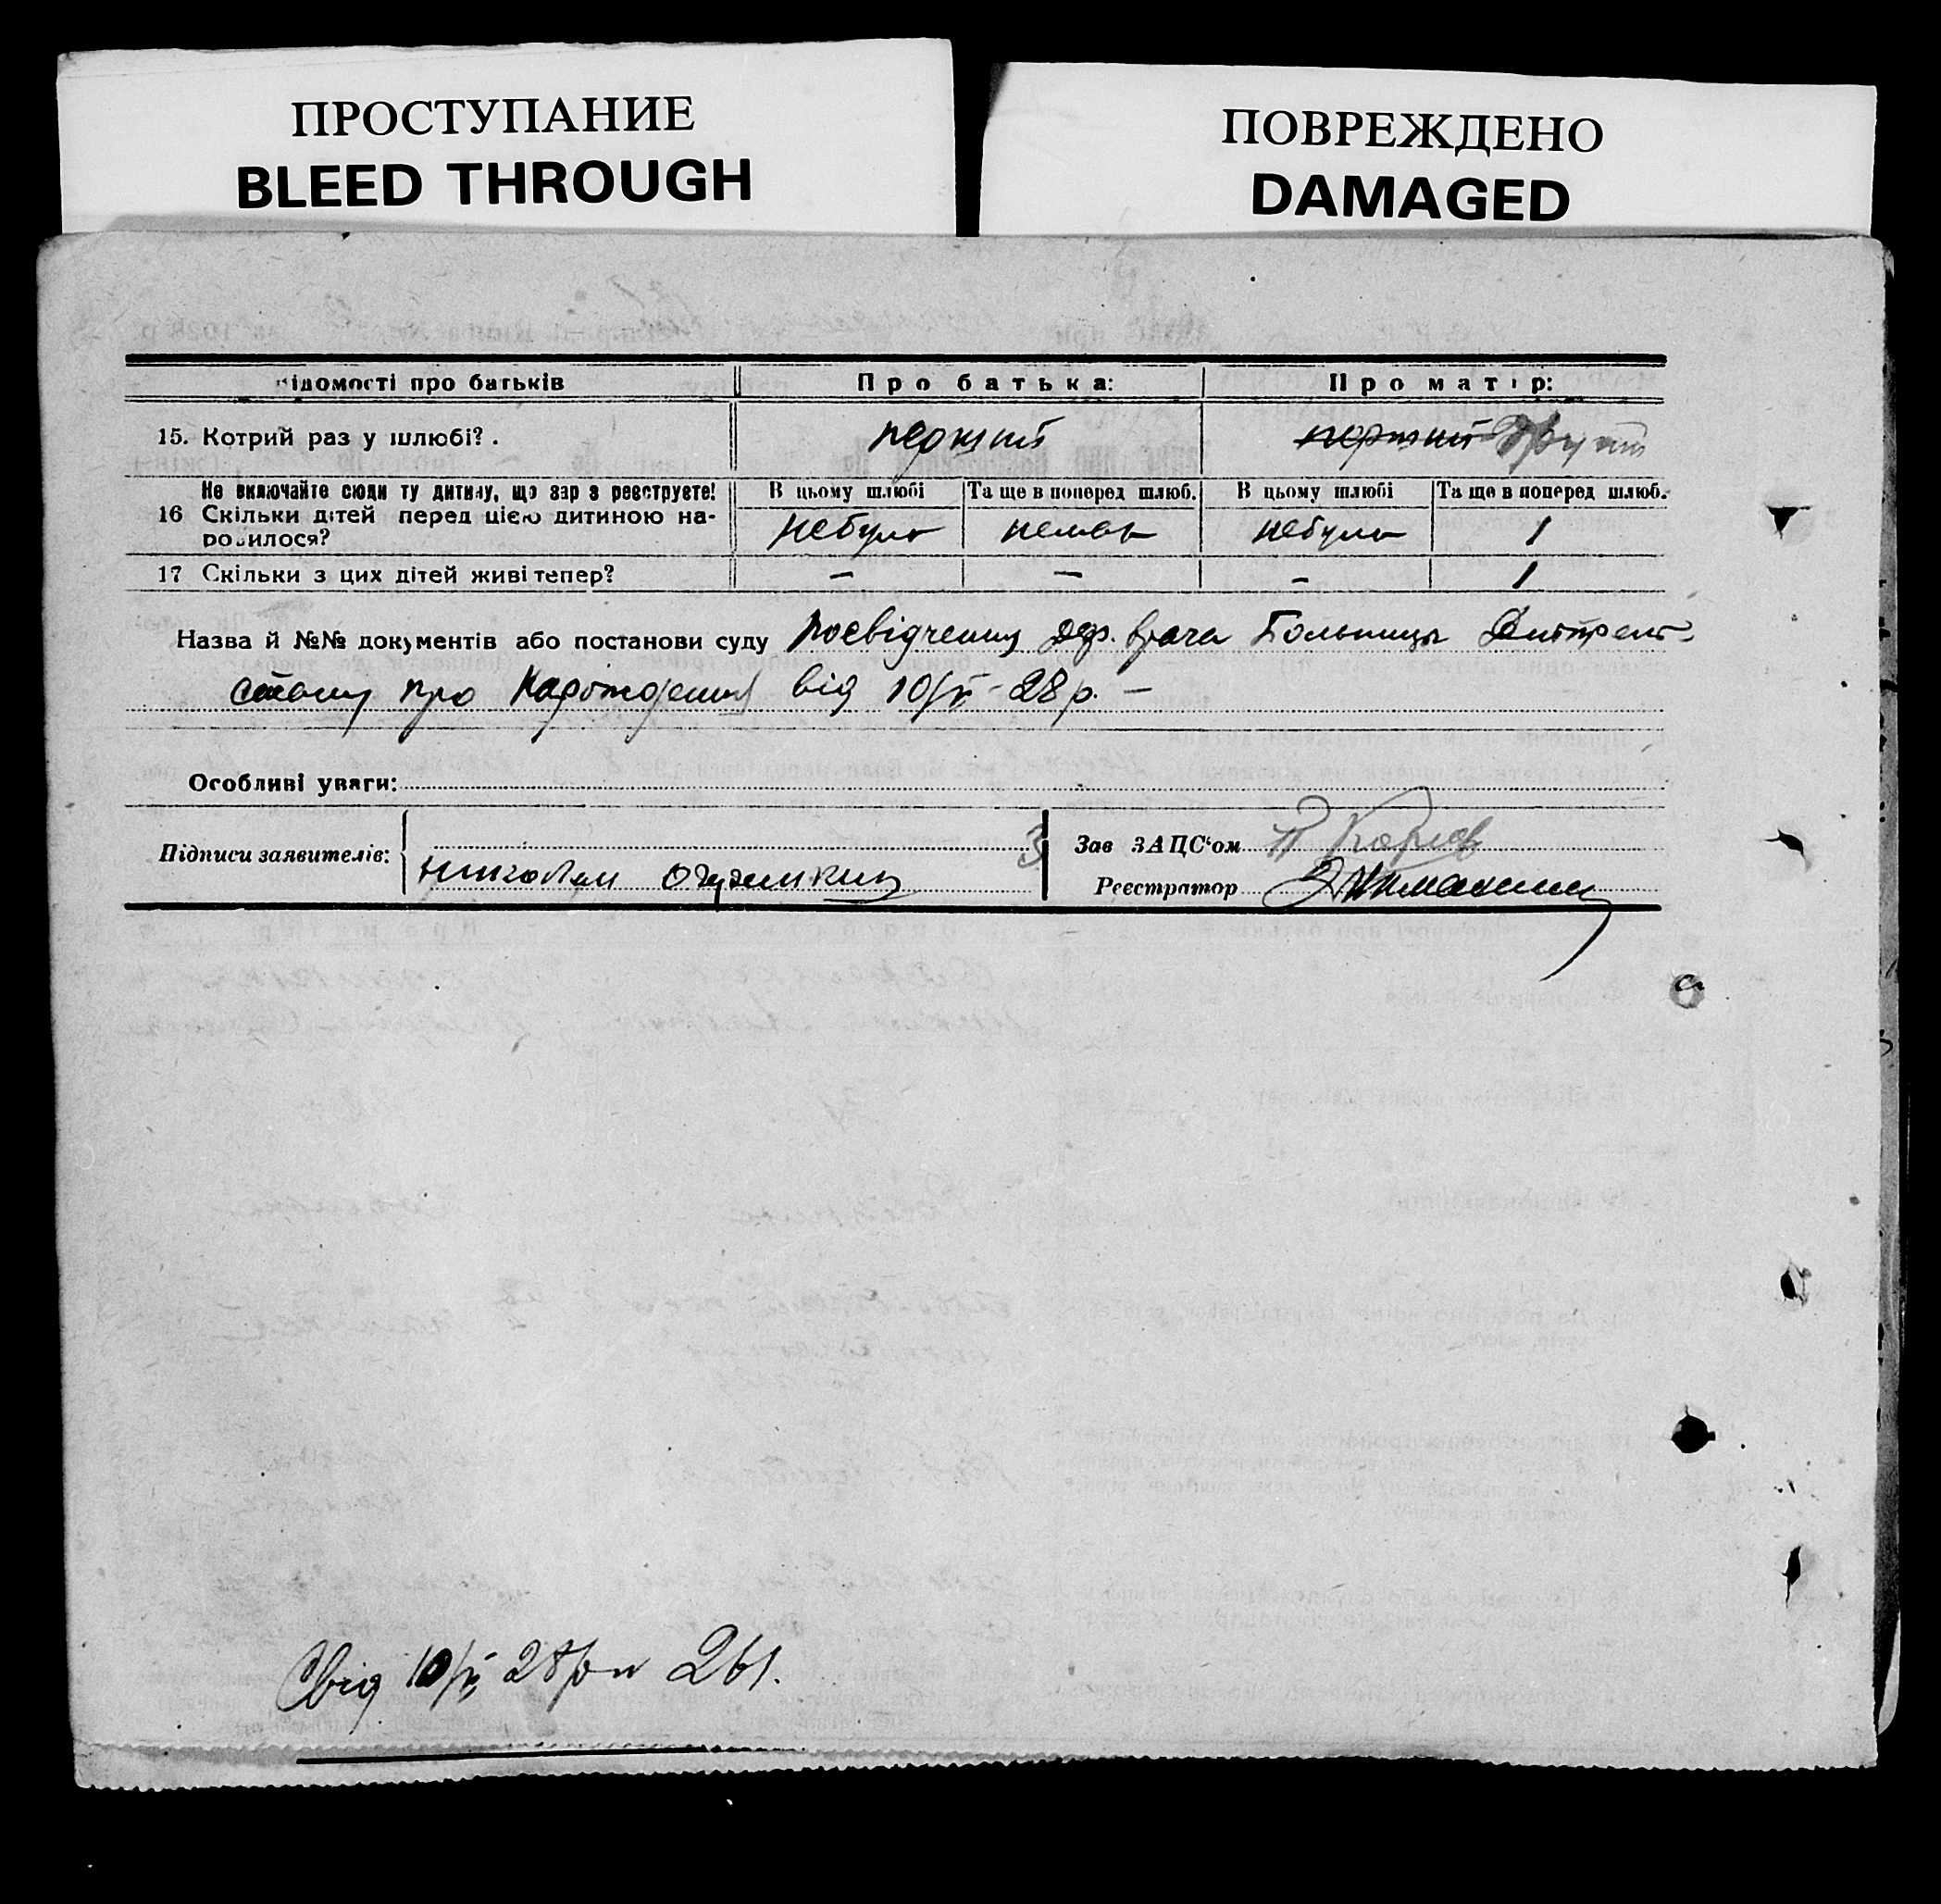 ПРОСТУПАНИЕ
BLEED THROUGH
ПОВРЕЖДЕНО
DAMAGED
відомості про батьків Про батька: Про матір:
15. Котрий раз у шлюбі? . первий первий другий
Не включайте сюди ту дитину, що зараз реєструєте!
16 Скільки дітей перед цією дитиною на-
родилося?
В цьому шлюбі Та ще в поперед шлюб. В цьому шлюбі Та ще в поперед шлюб.
небуло немає небуло 1
17 Скільки з цих дітей живі тепер? — — — 1
Назва й №№ документів або постанови суду Посвідчення врача Больницы
про від 10/V-28р. —
Особливі уваги:
Підписи заявителів: Николай 3
Зав ЗАЦС‘ом
Реєстратор
Свід 10/V 28р н 261.